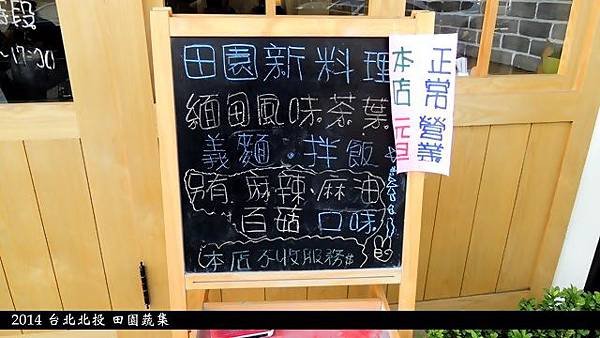 段
~17:00
田園新料理
緬甸風味茶葉
義麵·拌飯
有麻辣、麻油
百菇口味
本店不收服務費
正常營業
本店元旦
2014 台北北投 田園蔬集